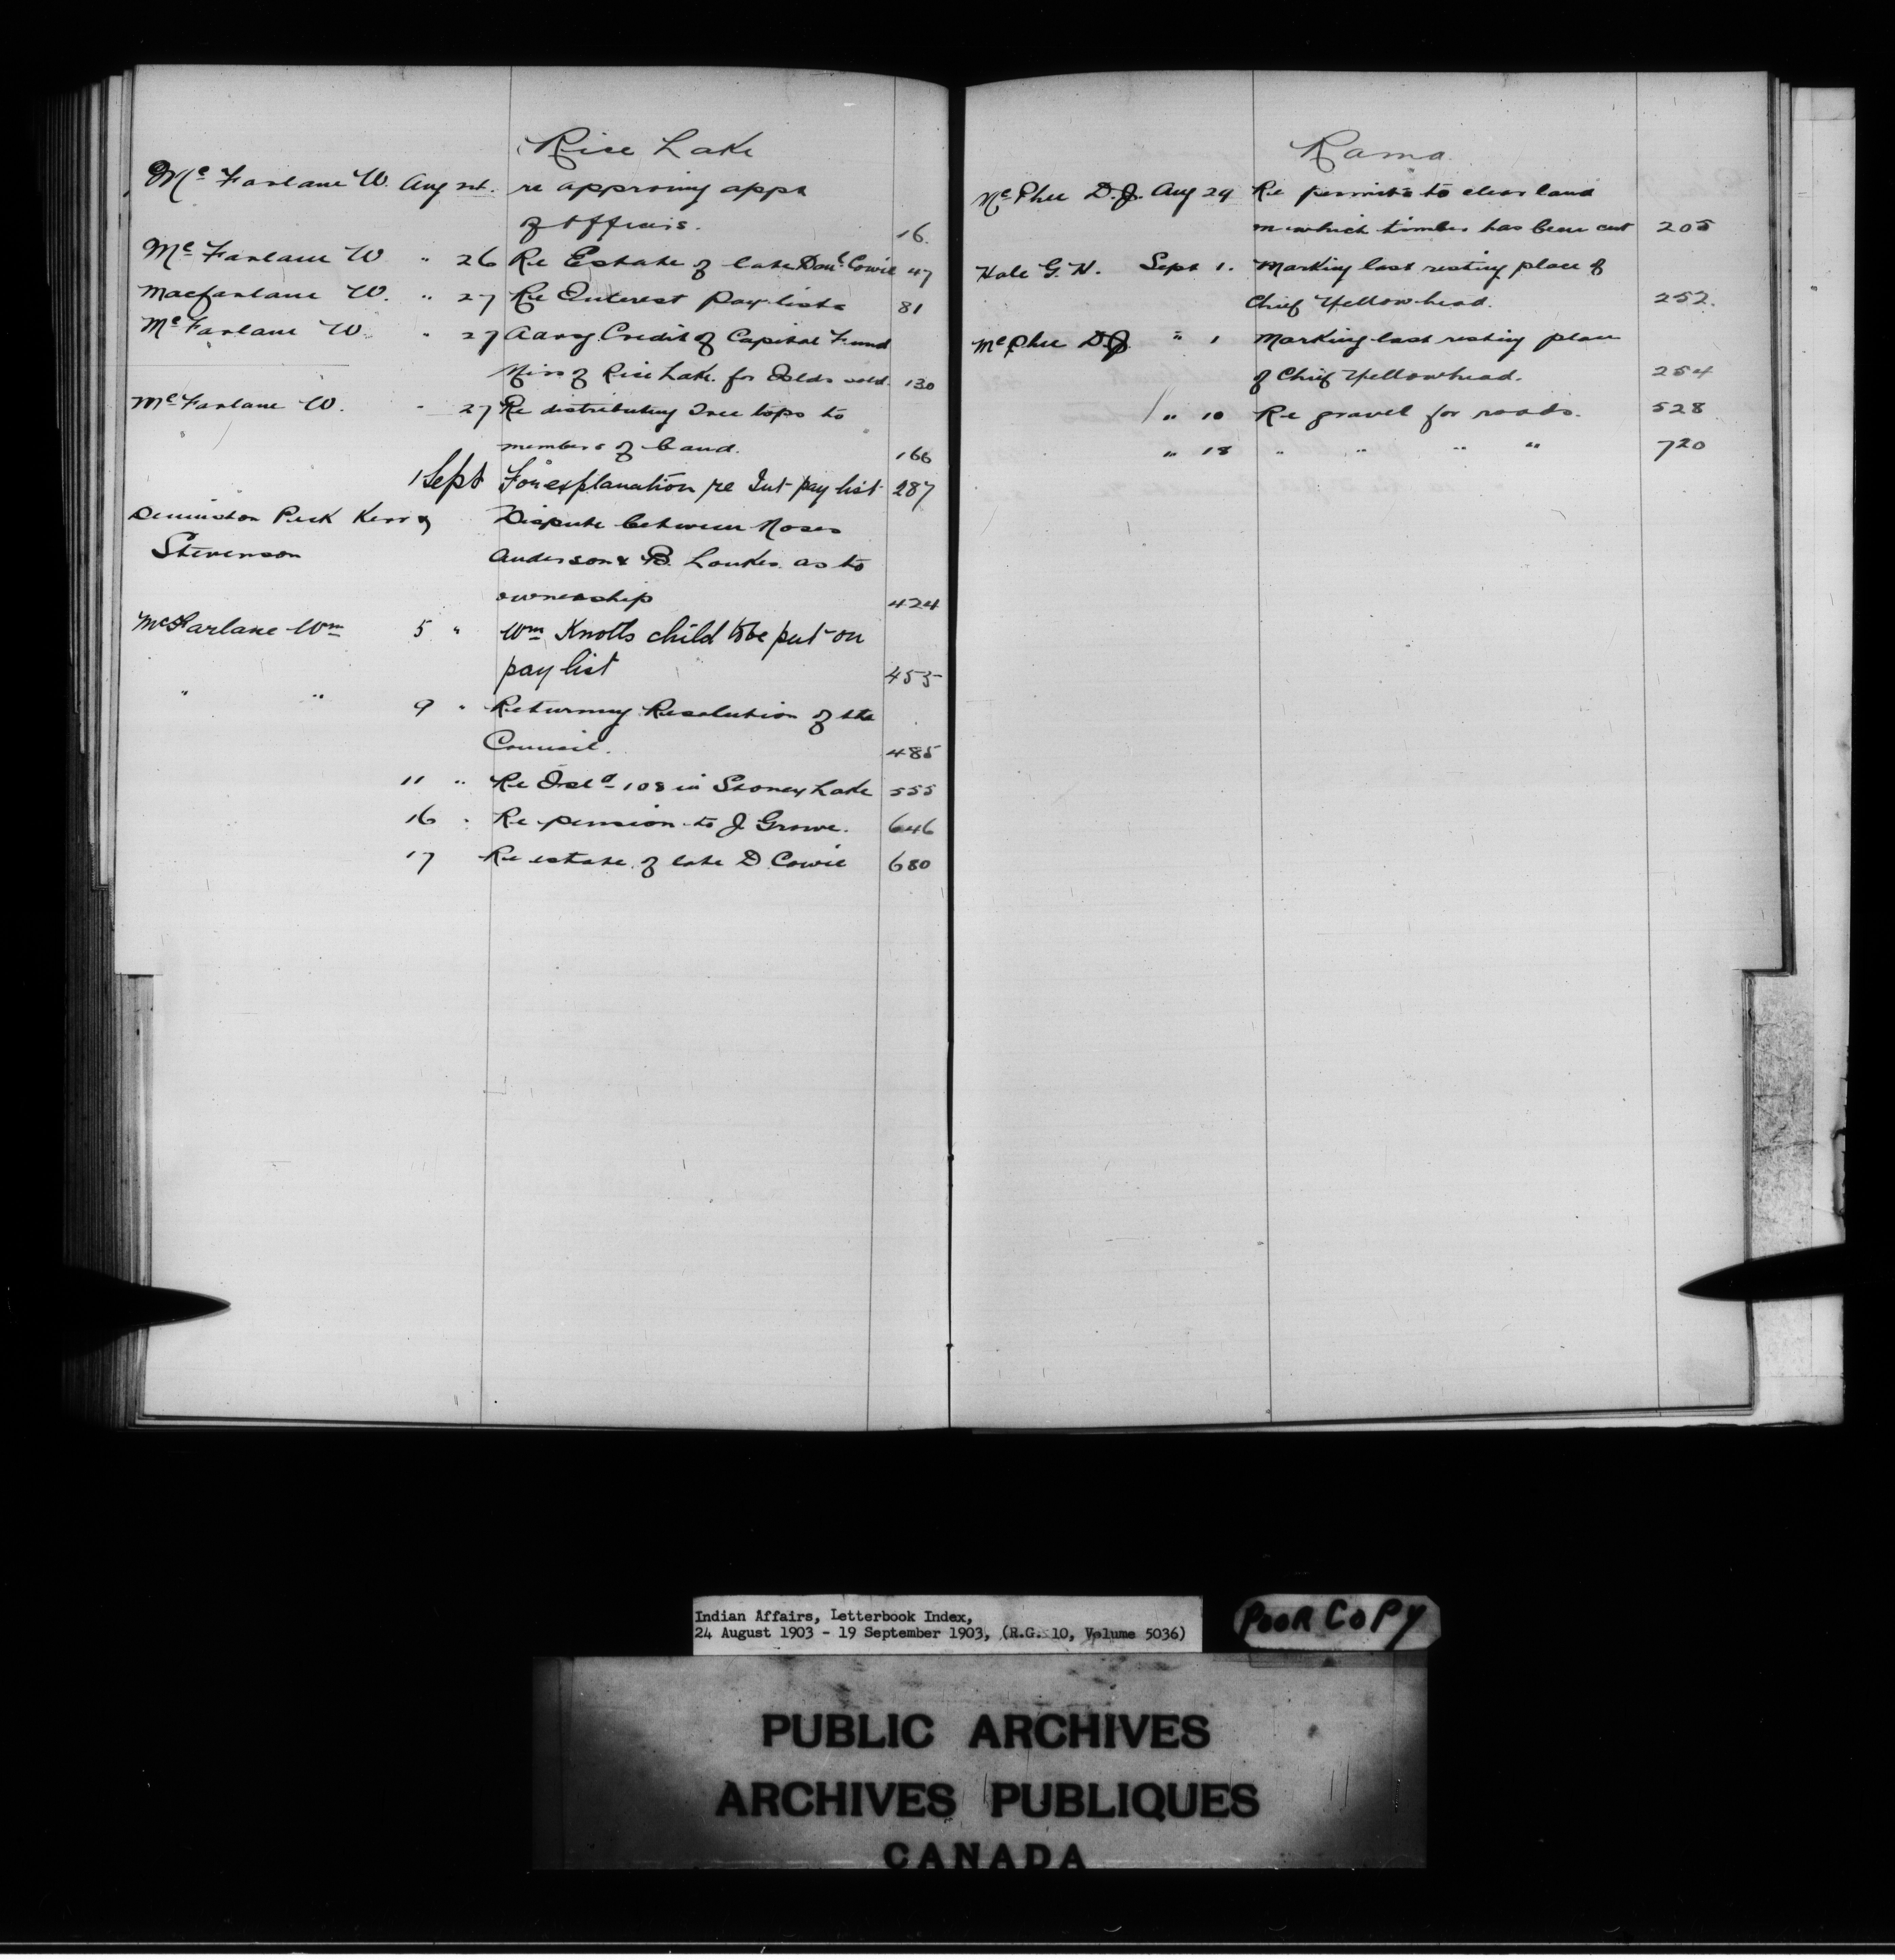 Rice Lake
McFarlane W. Aug 24. re approving appts
of officers. 16.
McFarlane W " 26 Re Estate of late Danl Cowie 47
Macfarlane W. " 27 Re Interest Pay-lists 81
McFarlane W. " 27 Advg Credit of Capital Fund
Miss of Rice Lake. for Islds sold. 130
McFarlane W. " 27 Re distributing Tree tops to
members of band. 166
1 Sept For explanation re Int pay list 287
Dennistoun Peck Kerr &
Stevenson
Dispute between Moses
Anderson & B. Loukes as to
ownership 424
McFarlane Wm 5 " Wm Knotts child to be put on
pay list 455
" " 9 " Returning Resolution of the
Council. 485
11 " Re Isld 108 in Stoney Lake 555
16 " Re pension to J Growe. 646
17 Re estate of late D Cowie 680
Rama
McPhee D.J. Aug 29 Re permits to clear land
on which timber has been cut 205
Hale G.H. Sept 1. Marking last resting place of
Chief Yellowhead. 252.
McPhee DJ " 1 Marking last resting place
of Chief Yellowhead. 254
" 10 Re gravel for roads. 528
" 18 " " " " 720
Indian Affairs, Letterbook Index,
24 August 1903 - 19 September 1903, (R.G. 10, Volume 5036)
POOR COPY
PUBLIC ARCHIVES
ARCHIVES PUBLIQUES
CANADA